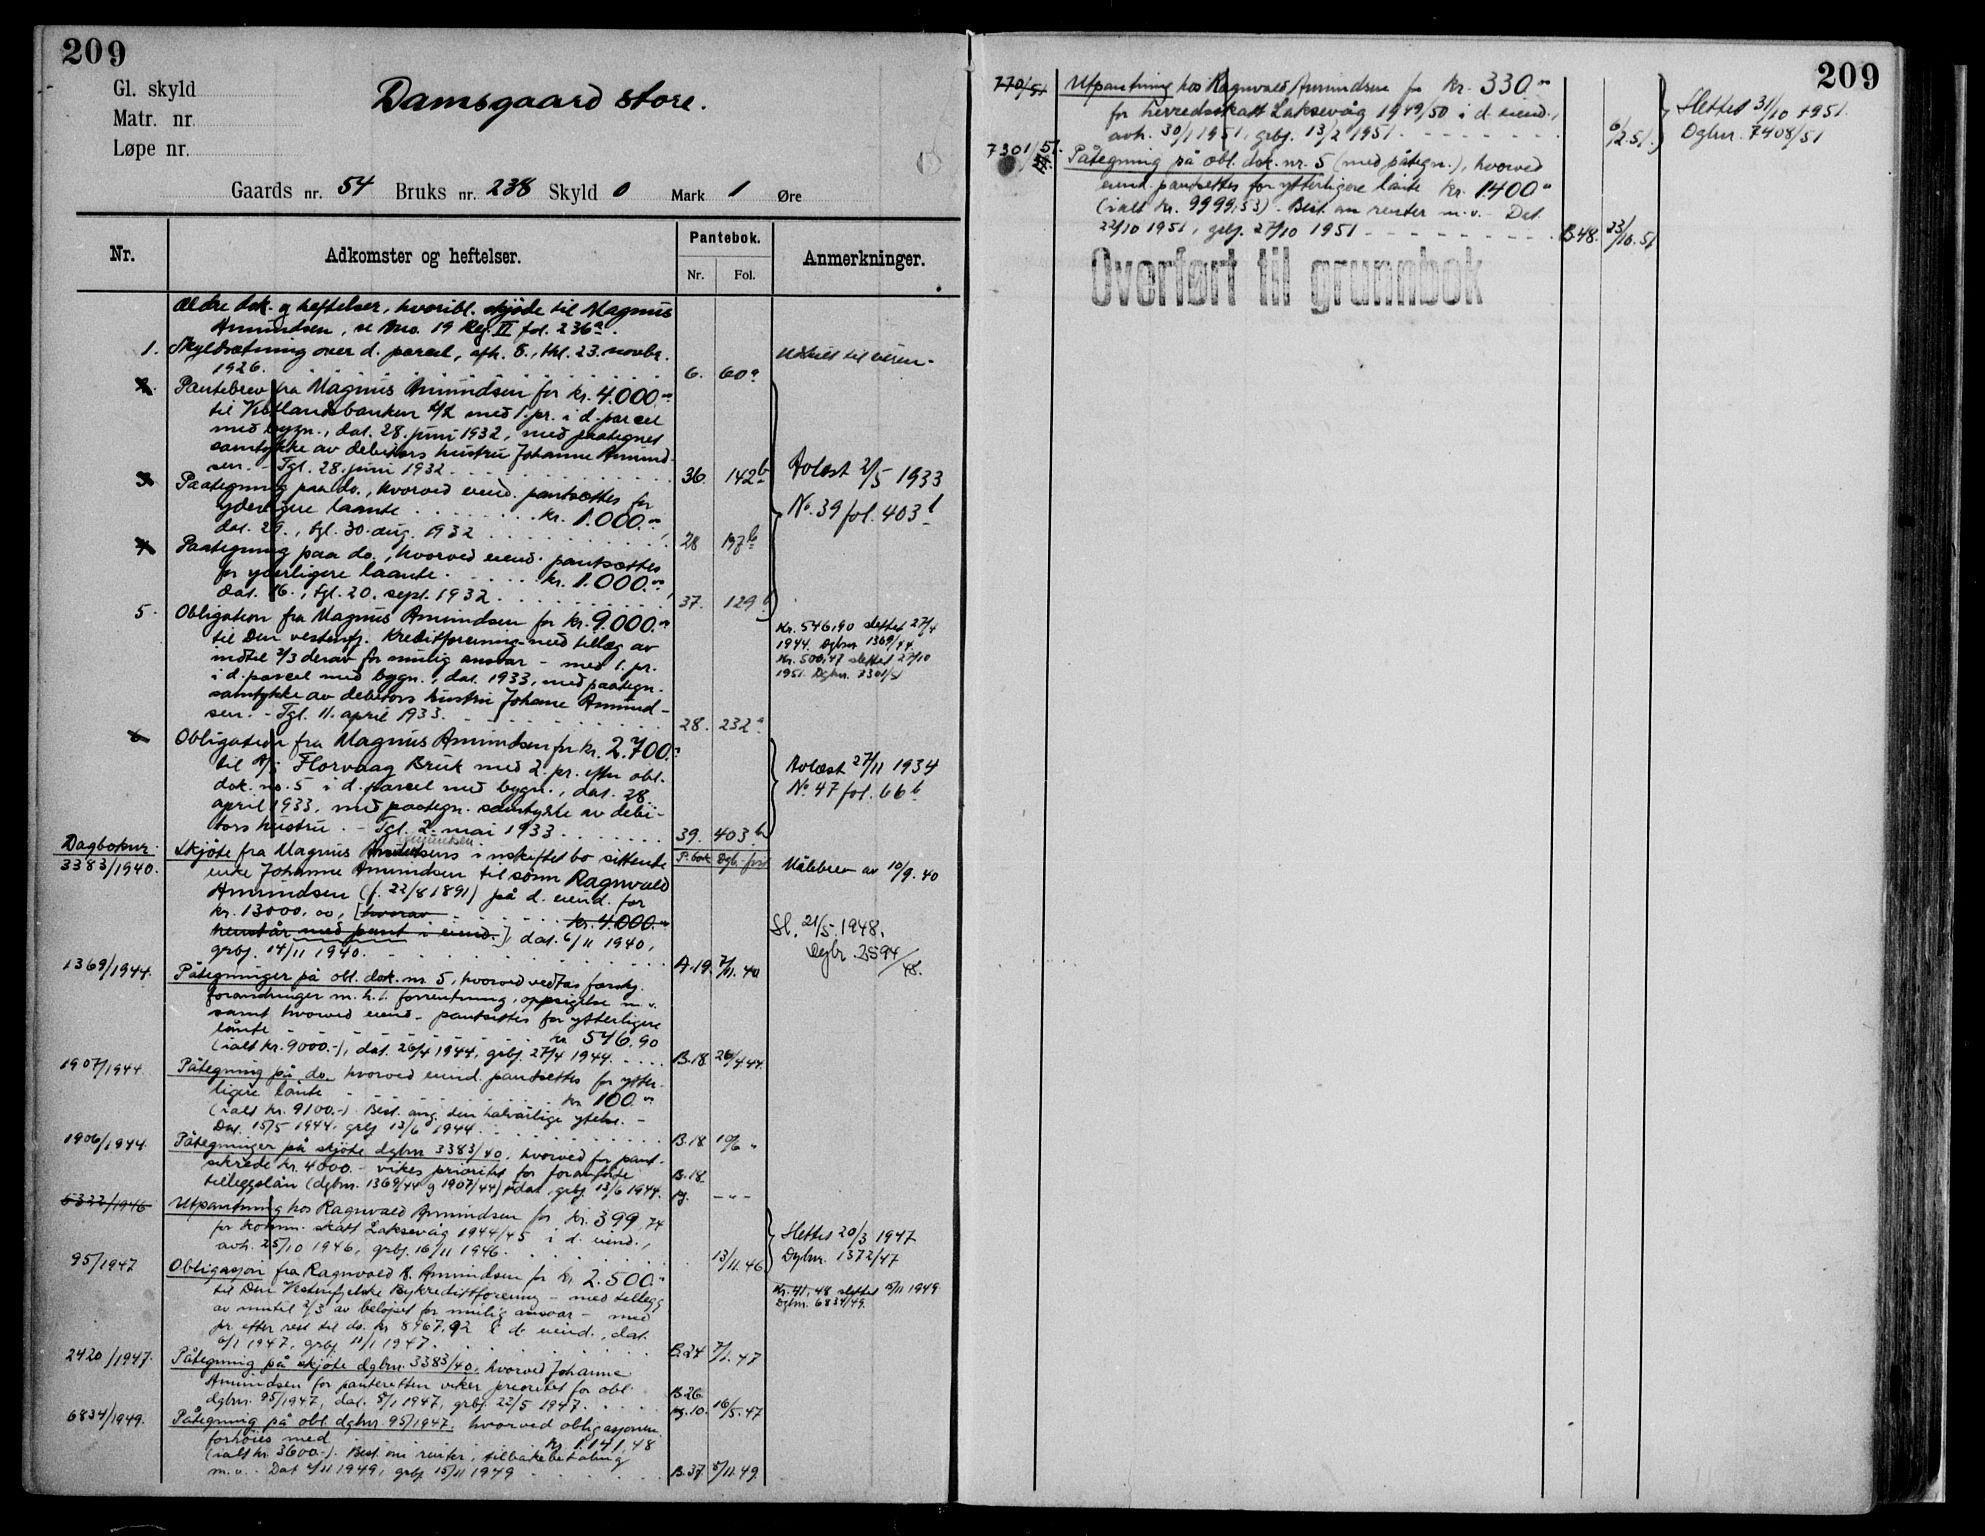 209
Gl. skyld
Matr. nr.
Løpe nr.
Damsgaard store.
Gaards nr. 54 Bruks nr. 238 Skyld 0 Mark 1 Øre
Nr.
Adkomster og heftelser.
Pantebok.
Nr. Fol.
Anmerkninger.
Ældre dok. og heftelser, hvoribl. skjöde til Magnus
Amundsen, se Mno. 19 Reg. II fol. 236a.
1. Skyldsætning over d. parcel, afh. 8., tkl. 23. novbr.
1926. 6. 60a
2. Pantebrev fra Magnus Amundsen for kr. 4.000.00
til Vestlandsbanken A/L med 1. pr. i d. parcel
med bygn., dat. 28. juni 1932, med paategnet
samtykke av debitors hustru Johanne Amund-
sen. - Tgl. 28. juni 1932. 36. 142b
3. Paategning paa do., hvorved eiend. pantsættes for
yderligere laante kr. 1.000.00,
dat. 29., tgl. 30. aug. 1932 28 197b
4. Paategning paa do., hvorved eiend. pantsættes
for yderligere laante kr. 1.000.00,
dat. 16., tgl. 20. sept. 1932 37. 129b
Avlæst 2/5 1933
No. 39 fol. 403b
5. Obligation fra Magnus Amundsen for kr. 9.000.00
til Den vestenfj. Kreditforening med tillæg av
indtil 2/3 derav for mulig ansvar - med 1. pr.
i d. parcel med bygn., dat. 1933, med paategn.
samtykke av debitors hustru Johanne Amund-
sen. - Tgl. 11. april 1933. 28. 232a
Kr. 546,90 slettet 27/4
1944. Dgbnr. 1369/44.
Kr. 500,47 slettet 27/10
1951. Dgbnr. 7301/51
6 Obligation fra Magnus Amundsen for kr. 2.700.
til A/S Florvaag Bruk med 2. pr. efter obl.
dok. no. 5 i d. parcel med bygn., dat. 28.
april 1933, med paategn. samtykke av debi-
tors hustru. - Tgl. 2. mai 1933 39. 403b
Avlæst 27/11 1934
No. 47 fol. 66b
Dagboknr. P. bok Dgb.
3383/1940. Skjöte fra Magnus Amundsens i uskiftet bo sittende
enke Johanne Amundsen til sönn Ragnvald
Amundsen (f. 22/8 1891) på d. eiend. for
kr. 13000.00, [hvorav kr. 4.000.00
henstår med pant i eiend.], dat. 6/11 1940,
grbf. 14/11 1940. A.19. 7/11.40
Målebrev av 10/9.40
Sl. 21/5.1948.
Dgbr. 2594/48.
1369/1944. Påtegninger på obl. dok. nr. 5, hvorved vedtas forskj.
forandringer m.h.t. forrentning, oppsigelse m.v.
samt hvorved eiend. pantsettes for ytterligere
lånte kr. 546.90
(ialt kr. 9000.-), dat. 26/4 1944, grbf. 27/4 1944. B.18 26/4.44
1907/1944. Påtegning på do. hvorved eiend. pantsettes for ytter-
ligere lånte kr. 100.00
(ialt kr. 9100.-). Best. ang. den halvårlige ytelse. -
Dat. 15/5 1944, grbf. 13/6 1944. B.18 10/6 "
1906/1944. Påtegninger på skjöte dgbnr 3383/40, hvorved for pant-
sikrede kr. 4000.- vikes prioritet for foranförte
tilleggslån (dgbnr. 1369/44 og 1907/44), dat., grbf. 13/6 1944. B.18. - " -
5322/1946 Utpantning hos Ragnvald Amundsen for kr. 399,74
for komm. skatt Laksevåg 1944/45 i d. eiend.,
avh. 25/10 1946, grbf. 16/11 1946. 13/11.46
Slettes 20/3 1947
Dgbnr. 1372/47
95/1947 Obligasjon fra Ragnvald Amundsen for kr 2.500.
til Den Vestenfjelske Bykreditforening - med tillegg
av inntil 2/3 av belöpet for mulig ansvar - med
pr. efter rest til do. kr 8967,92 i d. eiend., dat.
6/1 1947, grbf. 11/1 1947. B.24 7/1.47
Kr. 41,48 slettet 15/11 1949.
Dgbnr. 6834/49.
2420/1947. Påtegning på skjöte dgbnr. 3383/40, hvorved Johanne
Amundsen for panteretten viker prioritet for obl.
dgbnr. 95/1947, dat. 8/1 1947, grbf. 22/5 1947. B.26 16/5.47
6834/1949. Påtegning på obl. dgbnr. 95/1947, hvorved obligasjonen
forhöies med kr 1.141,48
(ialt kr. 3600.-). Best. om renter, tilbakebetaling
m.v. Dat 2/11 1949, grbf 15/11 1949 B.37. 5/11.49.
209
770/51 Utpantning hos Ragnvald Amundsen for kr. 330.00
for herredsskatt Laksevåg 1949/50 i d. eiend.,
avh. 30/1 1951, grbf. 13/2 1951. 6/2.51.
Slettes 31/10 1951.
Dgbnr. 7408/51
7301/51. Påtegning på obl. dok. nr. 5 (med påtegn.), hvorved
eiend. pantsettes for ytterligere lånte kr. 1400.
(ialt kr. 9999,53). Best. om renter m.v. - Dat.
22/10 1951, grbf. 27/10 1951 B.48. 23/10.51
Overført til grunnbok